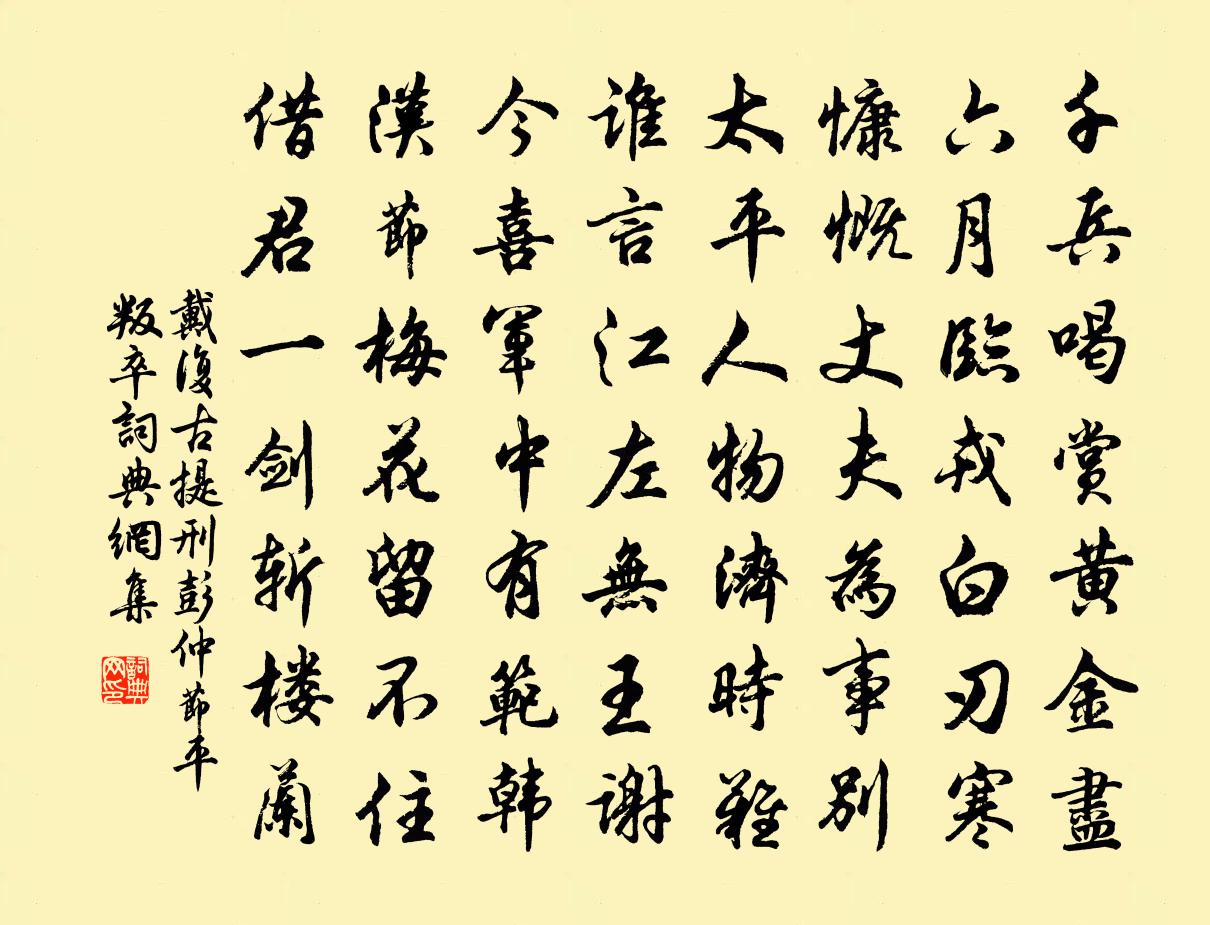 千兵喝賞黄金盡
六月臨戎白刃寒
慷慨丈夫為事别
太平人物濟時難
誰言江左無王謝
今喜軍中有範韩
漢節梅花留不住
借君一剑斩楼蘭
戴復古提刑彭仲節平
叛卒詞典網集
詞典
网印